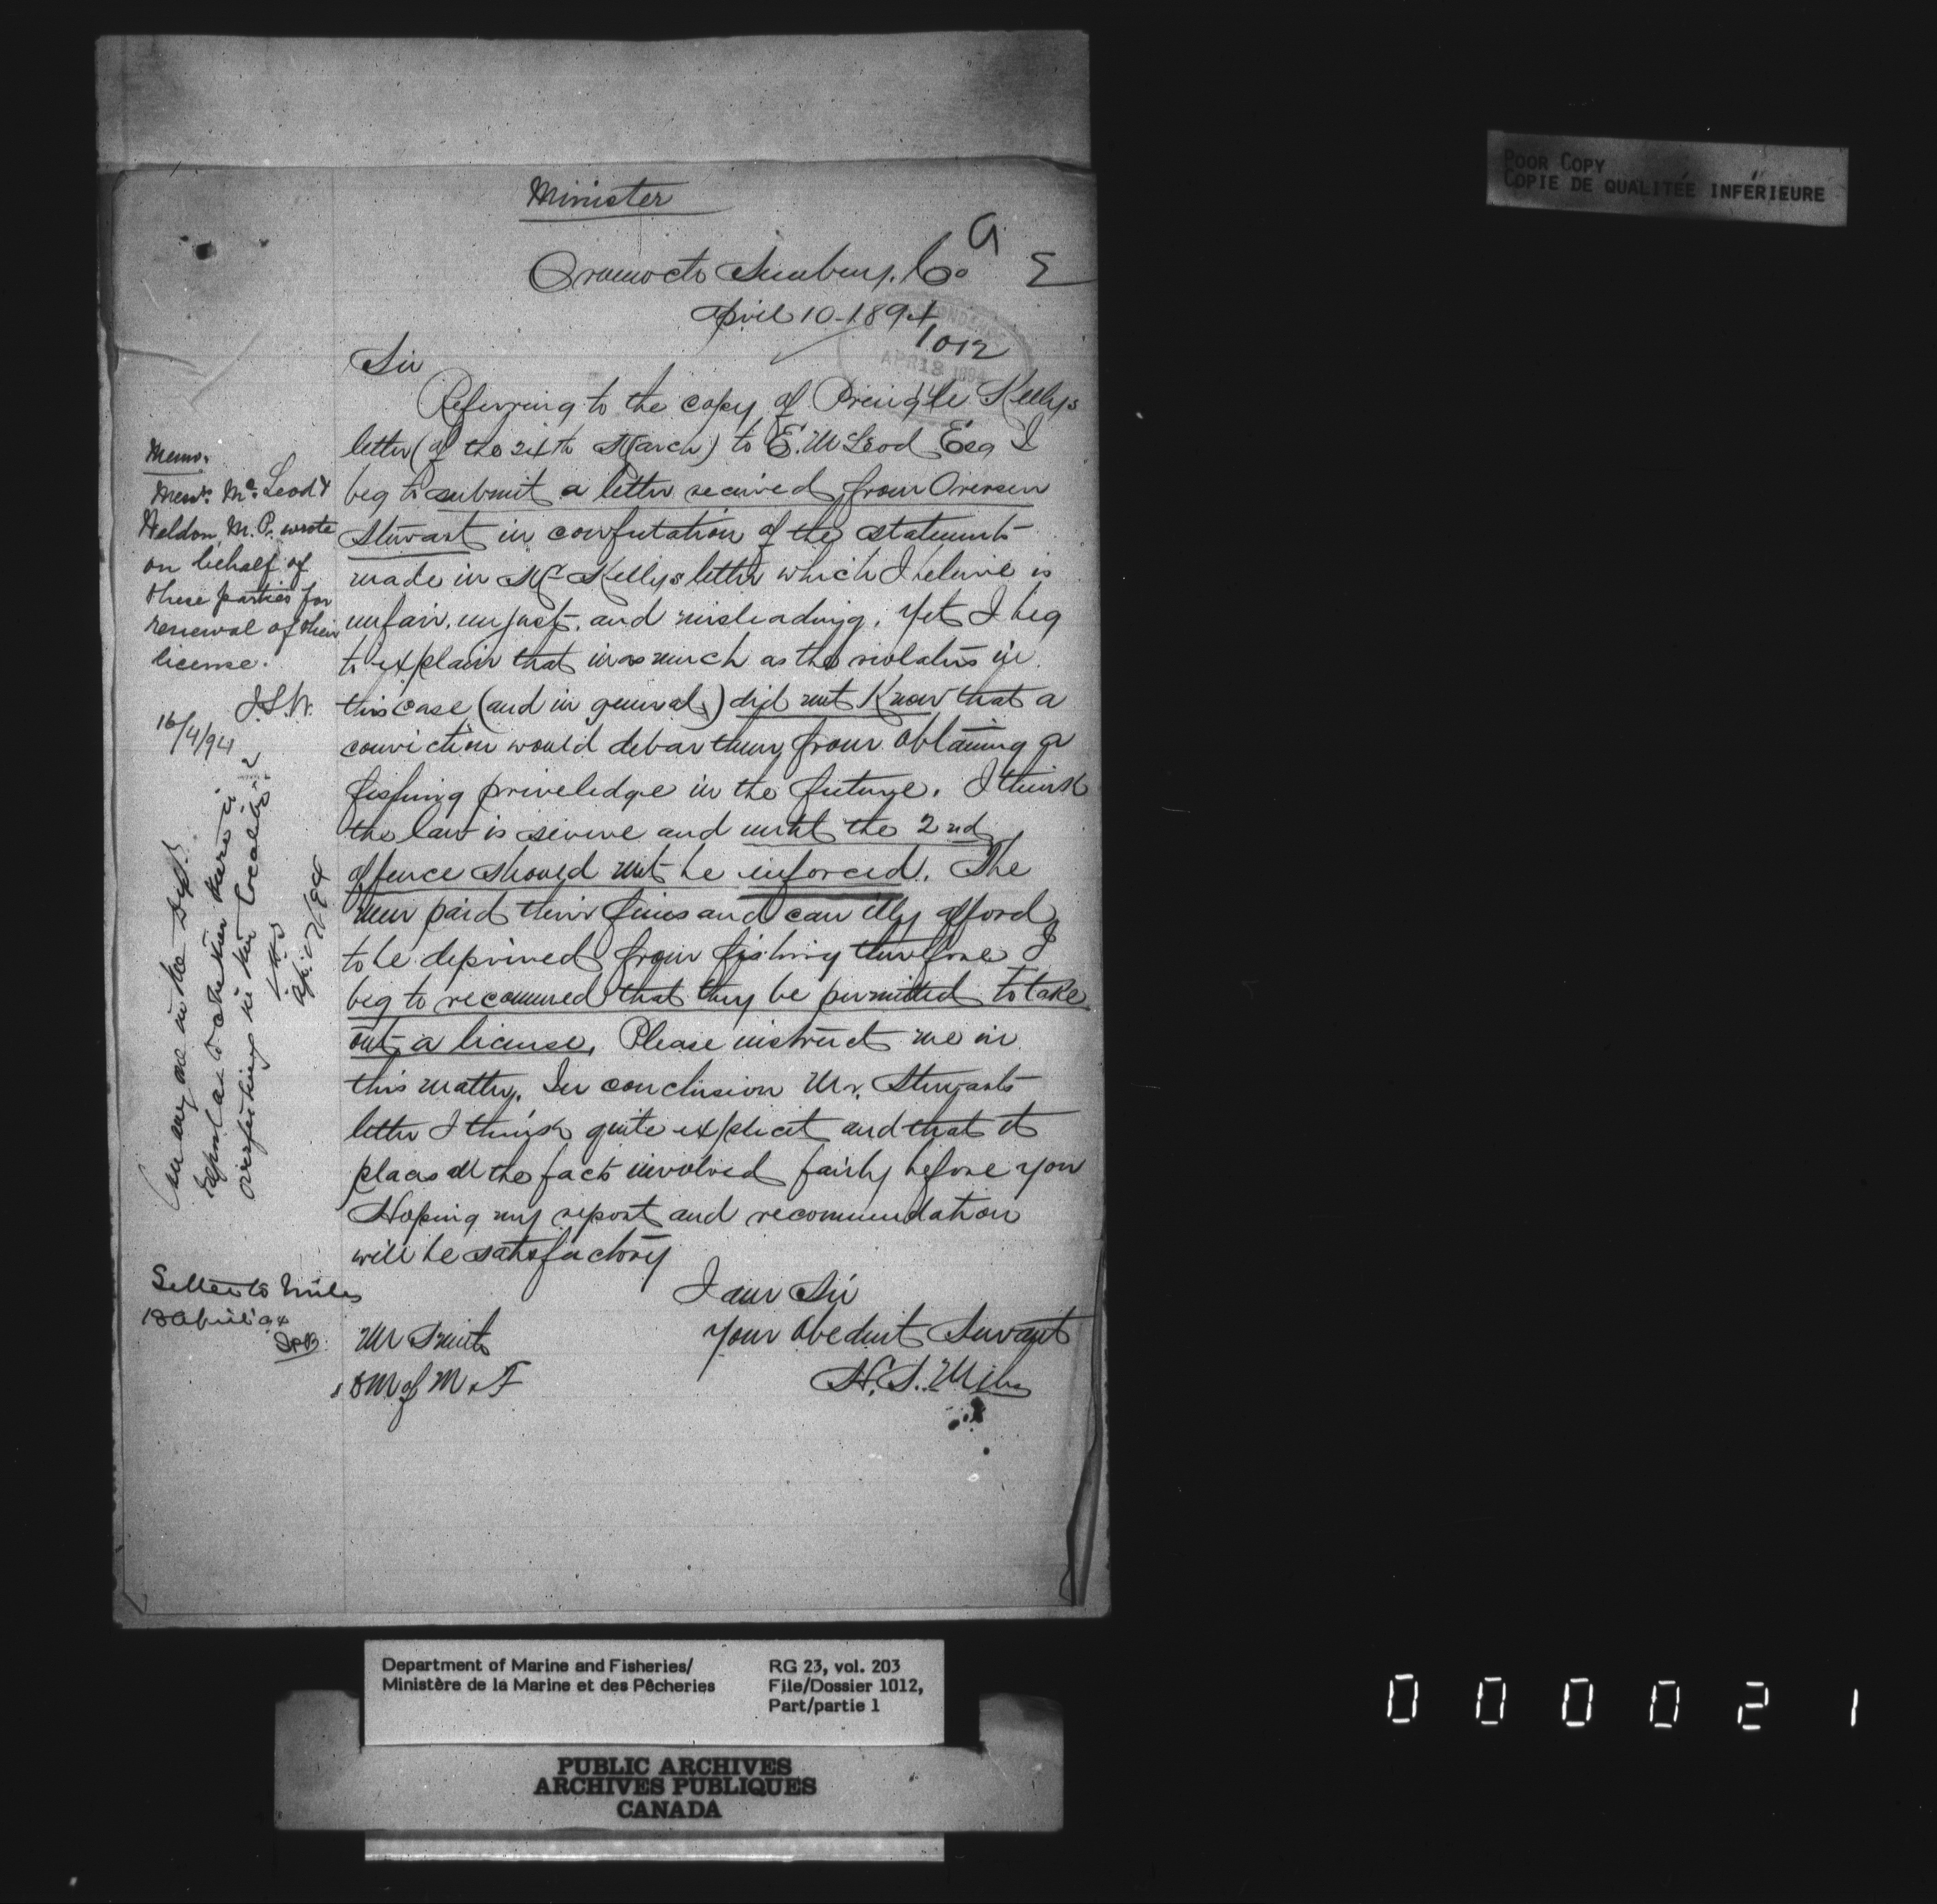 Minister
Oromocto Sunbury. Co
April 10-1894
1012
APR 13 1894
Sir
Referring to the copy of Pringle Kellys
letter (of the 24th March) to E. McLeod Esq I
beg to submit a letter received from Overseer
Stewart in confutation of the statements
made in Mr Kellys letter which I believe is
unfair, unjust, and misleading. Yet I beg
to explain that in as much as the violators in
this case (and in general) did not Know that a
conviction would debar them from obtaining a
fishing priveledge in the future. I think
the law is severe and until the 2nd
offence should not be inforced. The
men paid their fines and can illy afford
to be deprived from fishing therefore I
beg to recommed that they be permitted to take
out a license. Please instruct me in
this matter. In conclusion Mr. Stewarts
letter I think quite explicit and that it
places all the facts involved fairly before you
Hoping my report and recommendation
will be satisfactory
I am Sir
Your Obedient Servant
H. S. Miles
Mr Smith
DM of M & F
Memo.
Messrs. McLeod &
Weldon, M.P. wrote
on behalf of
these parties for
renewal of their
license.
J.S.W.
16/4/94
Can any one in the Dept.
report as to whether there is
overfishing in this locality
C.H.T.
Letter to Miles
18 April 94
POOR COPY
COPIE DE QUALITÉE INFÉRIEURE
Department of Marine and Fisheries/
Ministère de la Marine et des Pêcheries
RG 23, vol. 203
File/Dossier 1012,
Part/partie 1
PUBLIC ARCHIVES
ARCHIVES PUBLIQUES
CANADA
000021